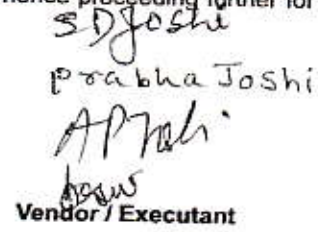 hence proceeding further for
SDJoshi
Prabha Joshi
Vendor / Executant